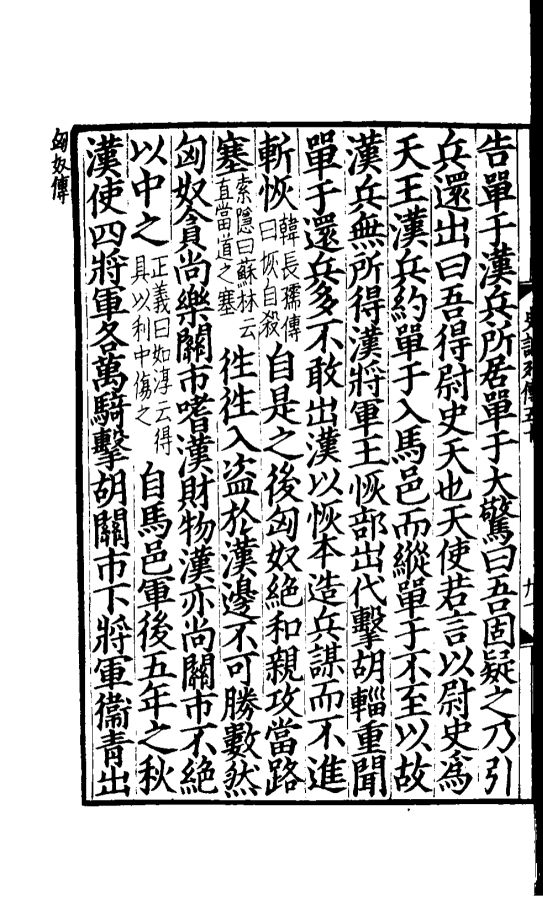 告單于漢兵所居單于大驚曰吾固疑之乃引
兵還出曰吾得尉史天也天使若言以尉史爲
天王漢兵約單于入馬邑而縱單于不至以故
漢兵無所得漢將軍王恢部出代擊胡輜重聞
單于還兵多不敢出漢以恢本造兵謀而不進
斬恢韓長孺傳曰恢自殺自是之後匈奴絶和親攻當路
塞索隱曰蘇林云直當道之塞徃徃入盗於漢邊不可勝數然
匈奴貪尚樂關市嗜漢財物漢亦尚關市不絶
以中之正義曰如淳云得具以利中傷之自馬邑軍後五年之秋
漢使四將軍各萬騎擊胡關市下將軍衞青出
匈奴傳